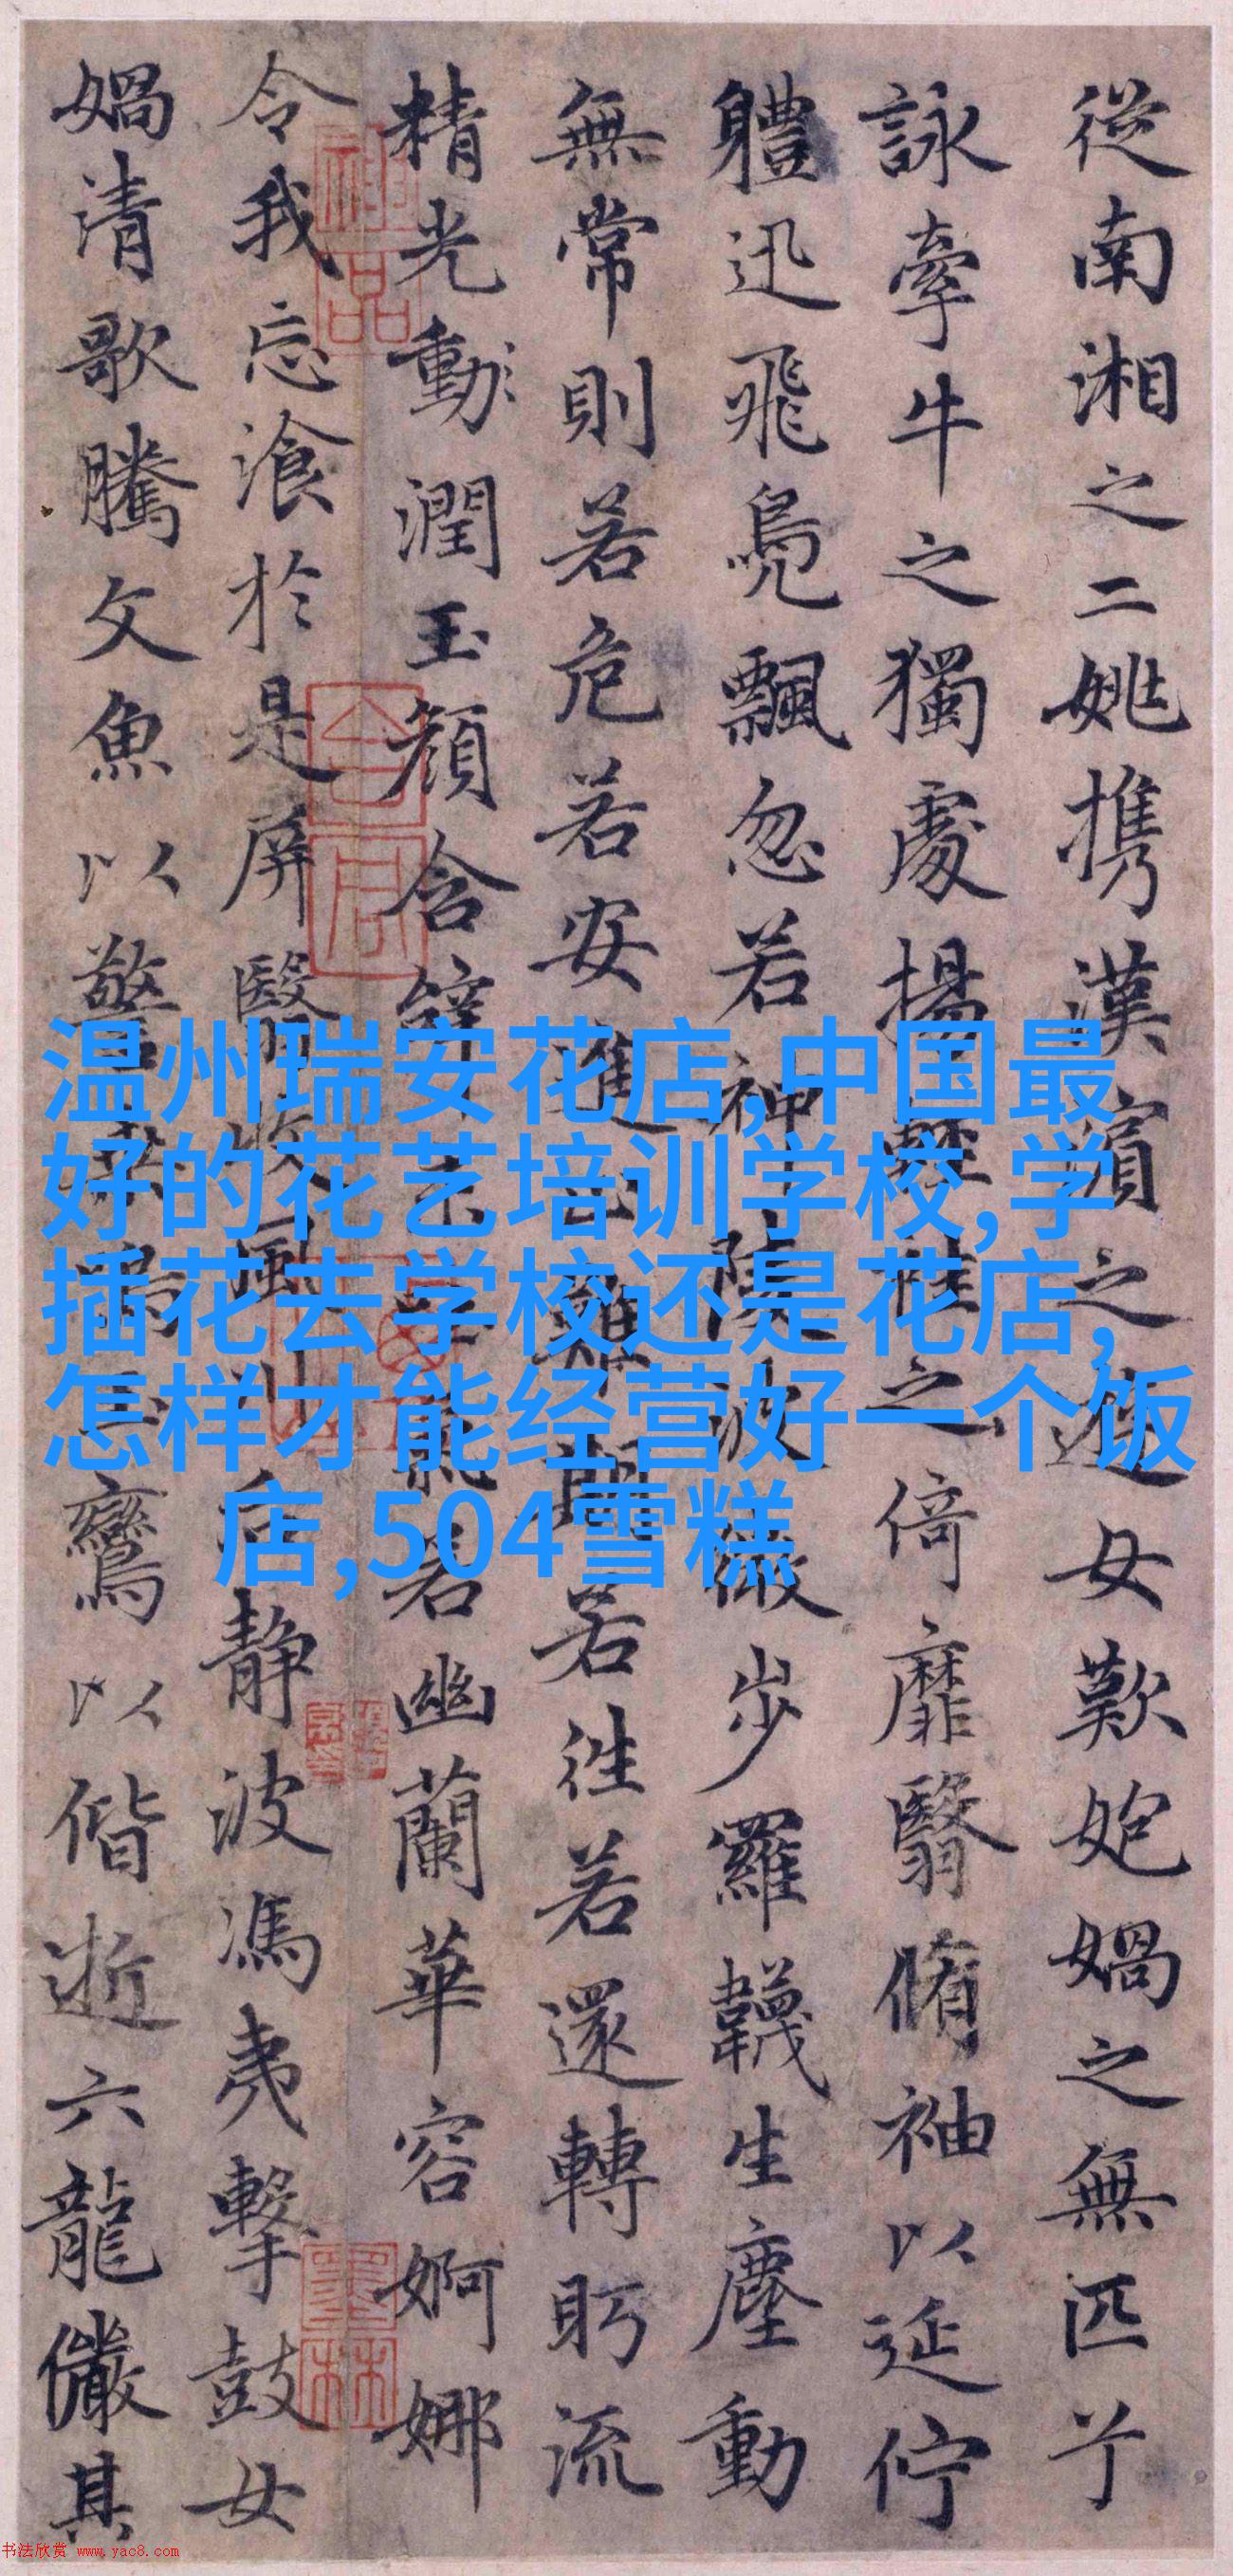 從南湘之二姚携漢濱之遊女歎妑媧之無匹兮
詠牽牛之獨處揚輕袿之倚靡翳脩袖以延佇
軆迅飛鳧飄忽若神陵波微步羅韈生塵動
無常則若危若安進止難期若往若還轉眄流
精光動潤玉顏含辭未吐氣若幽蘭華容婀娜
令我忘湌於是屏翳收風川后靜波馮夷擊鼓女
媧清歌騰文魚以警乘鳴玉鸞以偕逝六龍儼其
温州瑞安花店,中国最
好的花艺培训学校,学
插花去学校还是花店,
怎样才能经营好一个饭
店,504雪糕
神品
墨林
书法欣赏 www.yac8.com